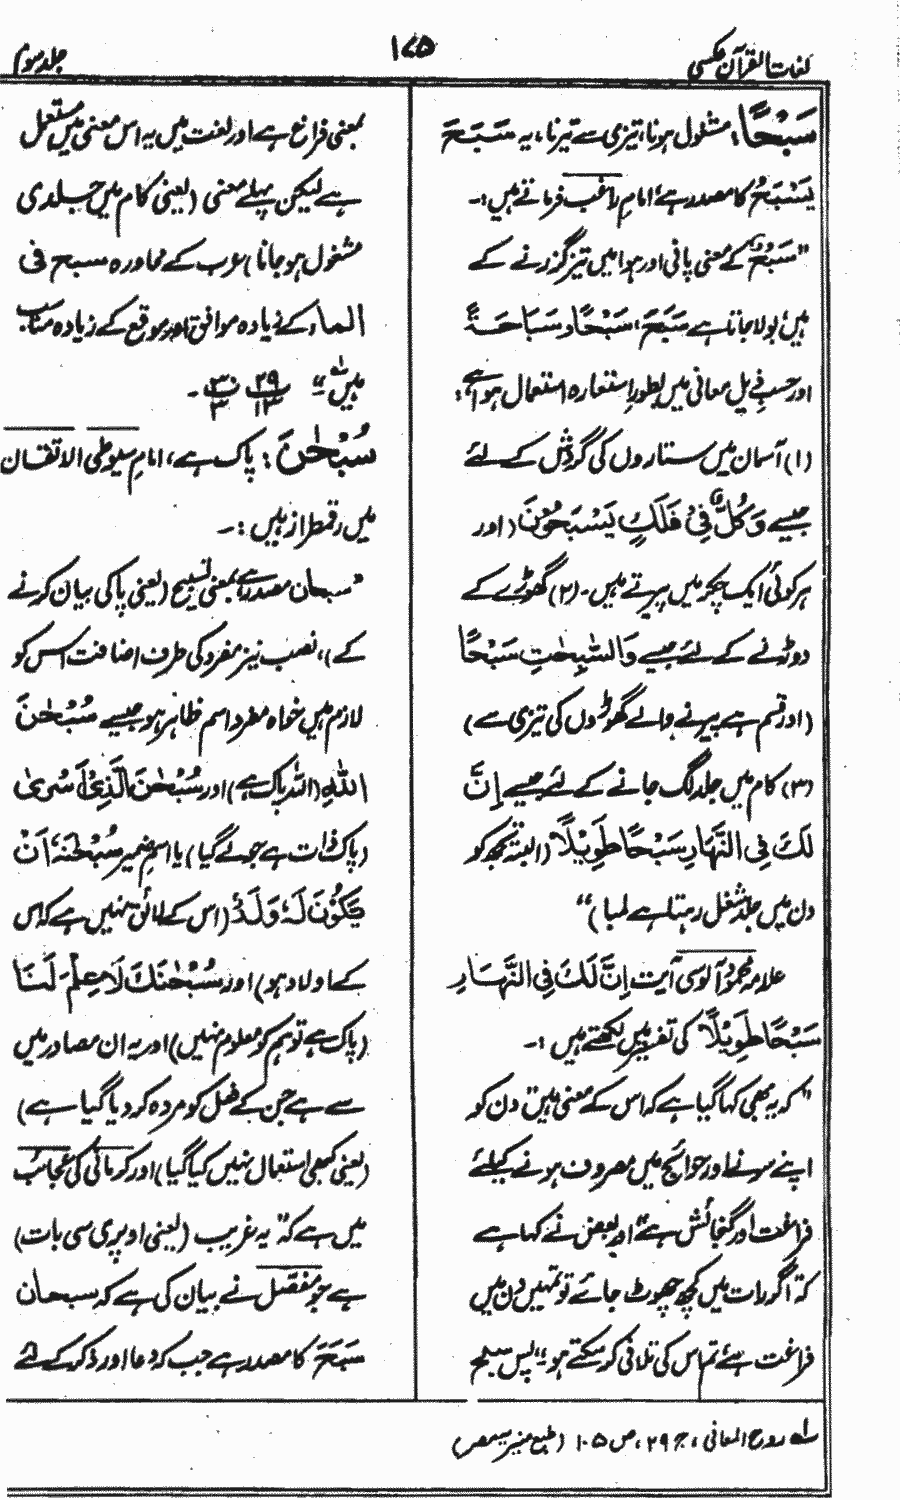 لغات القرآن عکسی
۱۷۵
جلد سوم
سَبْحًا: مشغول ہونا، تیزی سے تیرنا، یہ سَبَحَ
یَسْبَحُ کا مصدر ہے، امام راغب فرماتے ہیں:۔
"سَبْحٌ کے معنی پانی اور ہوا میں تیز گزرنے کے
ہیں، بولا جاتا ہے سَبَحَ، سَبْحًا و سَبَاحَةً
اور حسب ذیل معانی میں بطور استعارہ استعمال ہوا ہے:
(۱) آسمان میں ستاروں کی گردش کے لئے
جیسے وَکُلٌّ فِیْ فَلَکٍ یَسْبَحُوْنَ (اور
ہر کوئی ایک چکر میں پیرتے ہیں۔ (۲) گھوڑے کے
دوڑنے کے لئے جیسے وَالسّٰبِحٰتِ سَبْحًا
(اور قسم ہے پیرنے والے گھوڑوں کی تیزی سے)
(۳) کام میں جلد لگ جانے کے لئے جیسے اِنَّ
لَکَ فِی النَّهَارِ سَبْحًا طَوِیْلًا (البتہ تجھ کو
دن میں جلد شغل رہتا ہے لمبا)"
علامہ محمود آلوسی آیت اِنَّ لَکَ فِی النَّهَارِ
سَبْحًا طَوِیْلًا کی تفسیر میں لکھتے ہیں:۔
"کہ یہ بھی کہا گیا ہے کہ اس کے معنی ہیں دن کو
اپنے سونے اور حوائج میں مصروف ہونے کیلئے
فراغت اور گنجائش ہے، اور بعض نے کہا ہے
کہ اگر رات میں کچھ چھوٹ جائے تو تمہیں دن میں
فراغت ہے، تم اس کی تلافی کر سکتے ہو"، پس سبح
بمعنی فراغ ہے اور لغت میں یہ اس معنی میں مستعمل
ہے لیکن پہلے معنی (یعنی کام میں جلدی
مشغول ہو جانا) عرب کے محاورہ سبح فی
الماء کے زیادہ موافق اور موقع کے زیادہ مناسب
ہیں" لہ ۲۹/۱۳ ۳۰/۳۔
سُبْحٰنَ: پاک ہے، امام سیوطی الاتقان
میں رقمطراز ہیں:۔
"سبحان مصدر ہے بمعنی تسبیح (یعنی پاکی بیان کرنے
کے)، نصب نیز مفرد کی طرف اضافت اس کو
لازم ہیں خواہ مفرد اسم ظاہر ہو جیسے سُبْحٰنَ
اللهِ (اللہ پاک ہے) اور سُبْحٰنَ الَّذِیْ اَسْرٰی
(پاک ذات ہے جو لے گیا) یا اسم ضمیر سُبْحٰنَهٗ اَنْ
یَّکُوْنَ لَهٗ وَلَدٌ (اس کے لائق نہیں ہے کہ اس
کے اولاد ہو) اور سُبْحٰنَکَ لَا عِلْمَ لَنَا
(پاک ہے تو ہم کو معلوم نہیں) اور یہ ان مصادر میں
سے ہے جن کے فعل کو مردہ کر دیا گیا ہے)
(یعنی کبھی استعمال نہیں کیا گیا) اور کرمانی کی عجائب
میں ہے کہ "یہ غریب (یعنی اوپری سی بات)
ہے جو مفصل نے بیان کی ہے کہ سبحان
سَبَحَ کا مصدر ہے جب کہ دعا اور ذکر کے لئے
لہ روح المعانی، ج ۲۹، ص ۱۰۵ (طبع منیریہ مصر)